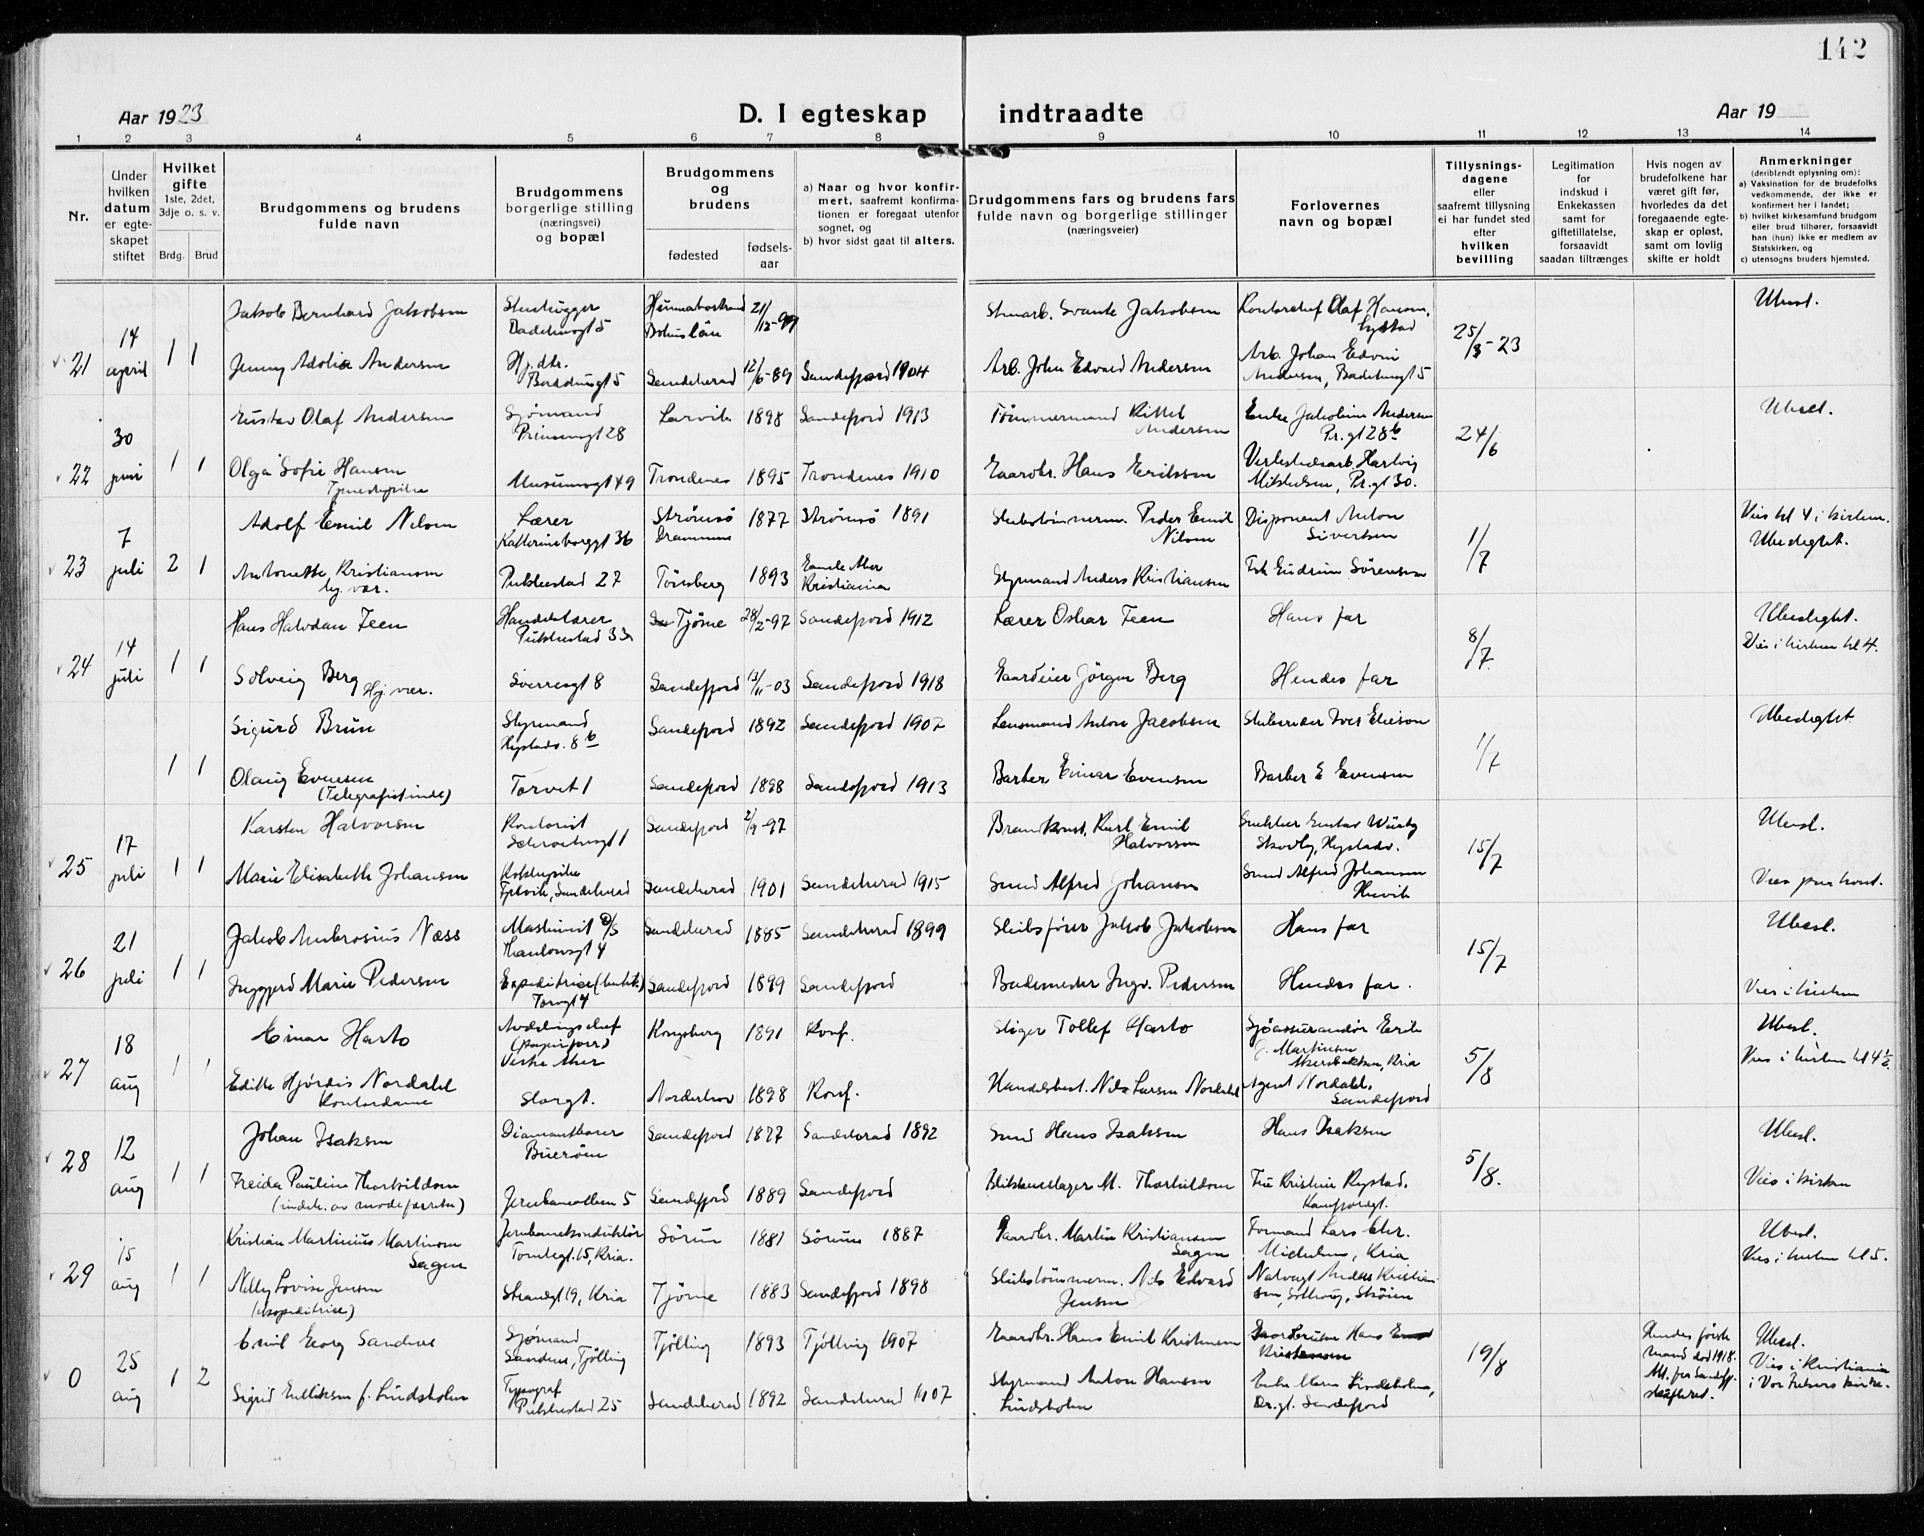 142
Aar 1923
D. I egteskap indtraadte
Aar 19
1 2 3 4 5 6 7 8 9 10 11 12 13 14
Nr.
Under hvilken datum er egteskapet stiftet
Hvilket gifte
1ste, 2det, 3dje o. s. v.
Brdg. Brud
Brudgommens og brudens fulde navn
Brudgommens borgerlige stilling (næringsvei) og bopæl
Brudgommens og brudens
fødested
fødselsaar
a) Naar og hvor konfirmert, saafremt konfirmationen er foregaat utenfor sognet, og
b) hvor sidst gaat til alters.
Brudgommens fars og brudens fars fulde navn og borgerlige stillinger (næringsveier)
Forlovernes navn og bopæl
Tillysningsdagene eller saafremt tillysning ei har fundet sted efter hvilken bevilling
Legitimation for indskud i Enkekassen samt for giftetillatelse, forsaavidt saadan tiltrænges
Hvis nogen av brudefolkene har været gift før, hvorledes da det foregaaende egteskap er opløst, samt om lovlig skifte er holdt
Anmerkninger
(deriblendt oplysning om):
a) Vaksination for de brudefolks vedkommende, der ikke er konfirmert her i landet;
b) hvilket kirkesamfund brudgom eller brud tilhører, forsaavidt han (hun) ikke er medlem av Statskirken, og
c) utensogns bruders hjemsted.
21 14 april 1 1
Jakob Bernhard Jakobsen Stenhugger Badehusgt 5 21/12-97 Stenarb. Svante Jakobsen Kontorchef Olaf Hansen, 25/3-23 Ubesl.
Jenny Adolia Andersen Badehusgt 5 Sandeherad 12/6-89 Sandefjord 1904 Arb. John Edvard Andersen Arb. Johan Edvin Andersen, Badehusgt 5
22 30 juni 1 1
Gustav Olaf Andersen Sjømand Prinsensgt 28 Larvik 1898 Sandefjord 1913 Tømmermand Kittel Andersen Enke Jakobine Andersen Pr.gt 28b 24/6 Ubesl.
Olga Sofie Hansen Tjenestepike Museumsgt 49 Trondenes 1895 Trondenes 1910 Gaardbr. Hans Eriksen Hartvig Mikkelsen, Pr.gt 30.
23 7 juli 2 1
Adolf Emil Nilsen Lærer Katterineborggt 36 Strømsø Drammen 1877 Strømsø 1891 Skibstømmerm. Peder Emil Nilsen Disponent Anton Sivertsen 1/7 Vies kl 4 i kirken. Ubeslegtet.
Antonette Kristiansen Hj. vær. Pukkestad 27 Tønsberg 1893 Gamle Aker Kristiania Styrmand Anders Kristiansen Frk Gudrun Sørensen
24 14 juli 1 1
Hans Halvdan Teen Handelslærer Pukkestad 33 Tjøme 28/2-97 Sandefjord 1912 Lærer Oskar Teen Hans far 8/7 Ubeslegtet. Vies i kirken kl 4.
Solveig Berg Hj. vær. Sverresgt 8 Sandefjord 13/11-03 Sandefjord 1918 Gaardeier Jørgen Berg Hendes far
1 1
Sigurd Brun Styrmand Hystadv. 8b Sandefjord 1892 Sandefjord 1907 Lensmand Anton Jacobsen Skibsreder Iver Eliesen 1/7 Ubeslegtet
Olaug Evensen (Telegrafistinde) Torvet 1 Sandefjord 1898 Sandefjord 1913 Barber Einar Evensen Barber E Evensen
25 17 juli 1 1
Karsten Halvorsen Kontorist Sandefjord 2/9-97 Brandkonst. Karl Emil Halvorsen Snekker Gustav Skovly, Hystadv. 15/7 Ubesl.
Marie Elisabeth Johansen Kokkepike Sandeherad Sandeherad 1901 Sandeherad 1915 Smed Alfred Johansen Smed Alfred Johansen
26 21 juli 1 1
Jakob Ambrosius Næss Maskinist Thaulowsgt 4 Sandeherad 1885 Sandeherad 1899 Skibsfører Jakob Jakobsen Hans far 15/7 Ubesl.
Inggjerd Marie Pedersen Expeditrise (butik) Torvgt 4 Sandefjord 1899 Sandefjord Bademester Ingv. Pedersen Hendes far. Vies i kirken
27 18 aug 1 1
Einar Harto Avdelingschef Vestre Aker Kongsberg 1891 Konf. Stiger Tollef Harto Sjøassurandør Erik Martinsen Kria 5/8 Ubesl. Vies i kirken kl 4½
Edith Hjørdis Nordahl Kontordame Storgt. Norderhov 1898 Konf. Handelsbest. Nils Larsen Nordahl Agent Nordahl, Sandefjord
28 12 aug 1 1
Johan Isaksen Diamantborer Buerøen Sandefjord 1877 Sandeherad 1892 Smed Hans Isaksen Hans Isaksen 5/8. Ubesl.
Freida Pauline Thorkildsen Jernbanealleen 5 Sandefjord 1889 Sandefjord Blikkenslager M. Thorkildsen Fru Kristine Rystad. Kamfjordgt. Vies i kirken
29 15 aug 1 1
Kristian Martinius Martinsen Sagen Jernbanekonduktør Tomtegt. 15, Kria. Sørum 1881 Sørum 1887 Gaardbr. Martin Kristiansen Sagen Formand Lars Chr. Michelsen, Kria Ubesl. Vies i kirken kl 5.
Nelly Lovise Jensen (expeditrise) Strandgt 19, Kria Tjøme 1883 Sandefjord 1898 Skibstømmerm. Nils Edvard Jensen Natvagt Anders Kristiansen, Solhaug, Skøien
0 25 aug 1 2
Emil Georg Sandnes Sjømand Sandnes, Tjølling Tjølling 1893 Tjølling 1907 Gaardbr. Hans Emil Kristensen Gaardbruker Hans Emil Kristensen 19/8 Hendes første mand død 1918. Att. fra Sandefj. skifteret. Ubesl. Vies i Kristiania i Vor Frelsers kirke.
Sigrid Eulliksen f. Lindsholm Typograf Pukkestad 25 Sandeherad 1892 Sandeherad 1907 Styrmand Anton Hansen Lindsholm Enke Maren Lindsholm, Dr.gt. Sandefjord